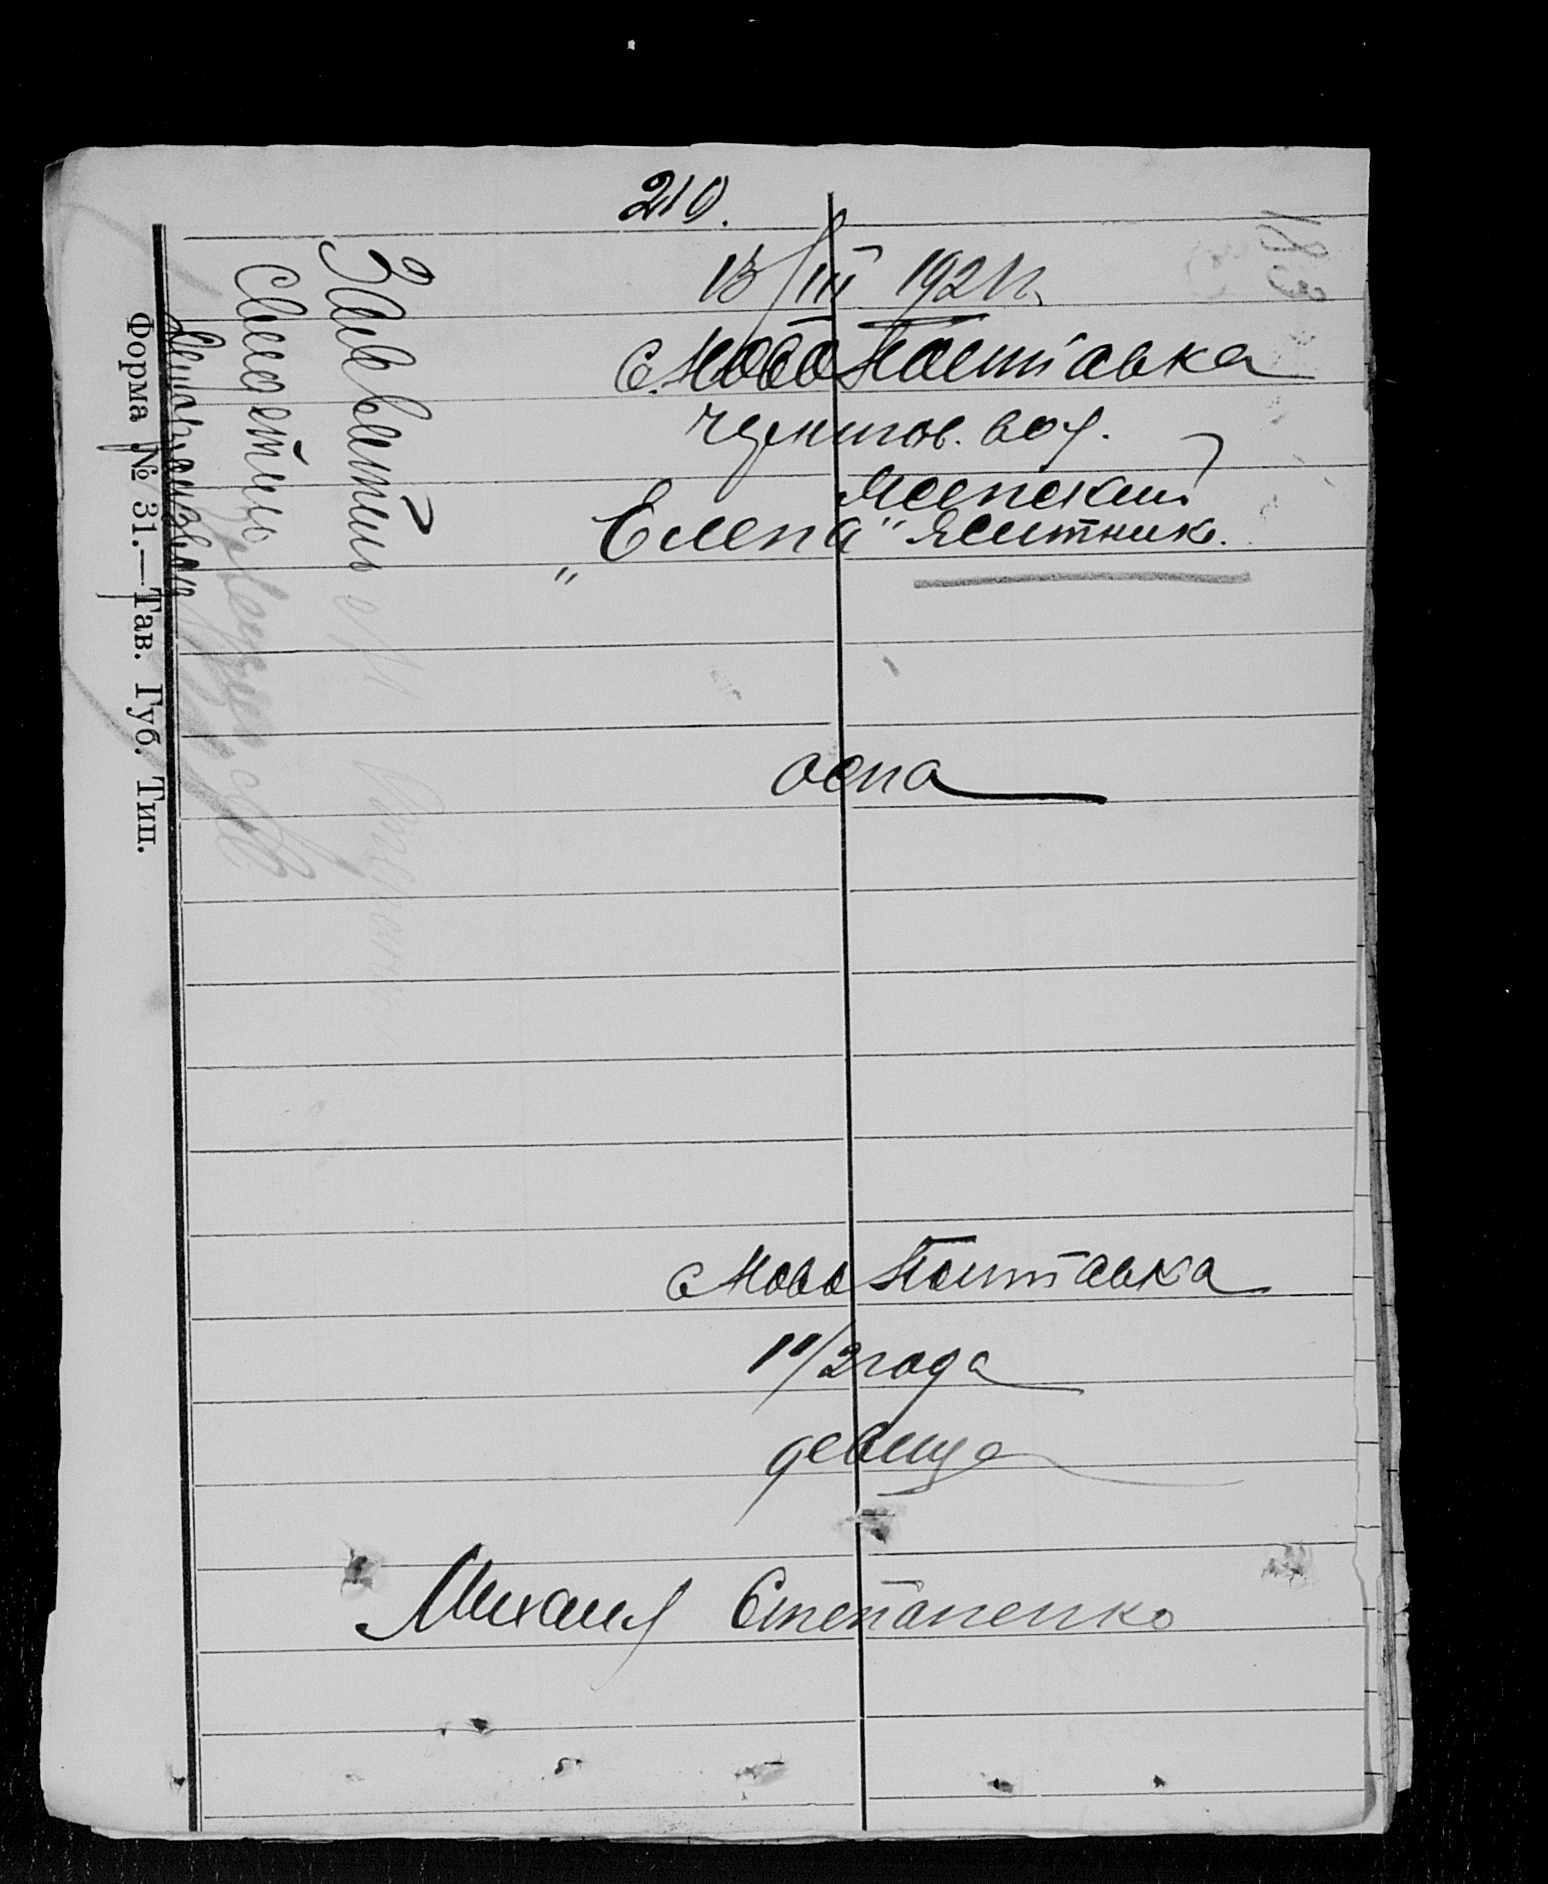 210.
13/III 1921 г.
с. Ново Полтавка
Чернигов. вол.
Ясенский
„Елена" Яситник.
оспа
с Ново Полтавка
1 1/2 года
девица
Михаил Степаненко
Заявитель
Свидетель
Форма № 31.—Тав. Губ. Тип.